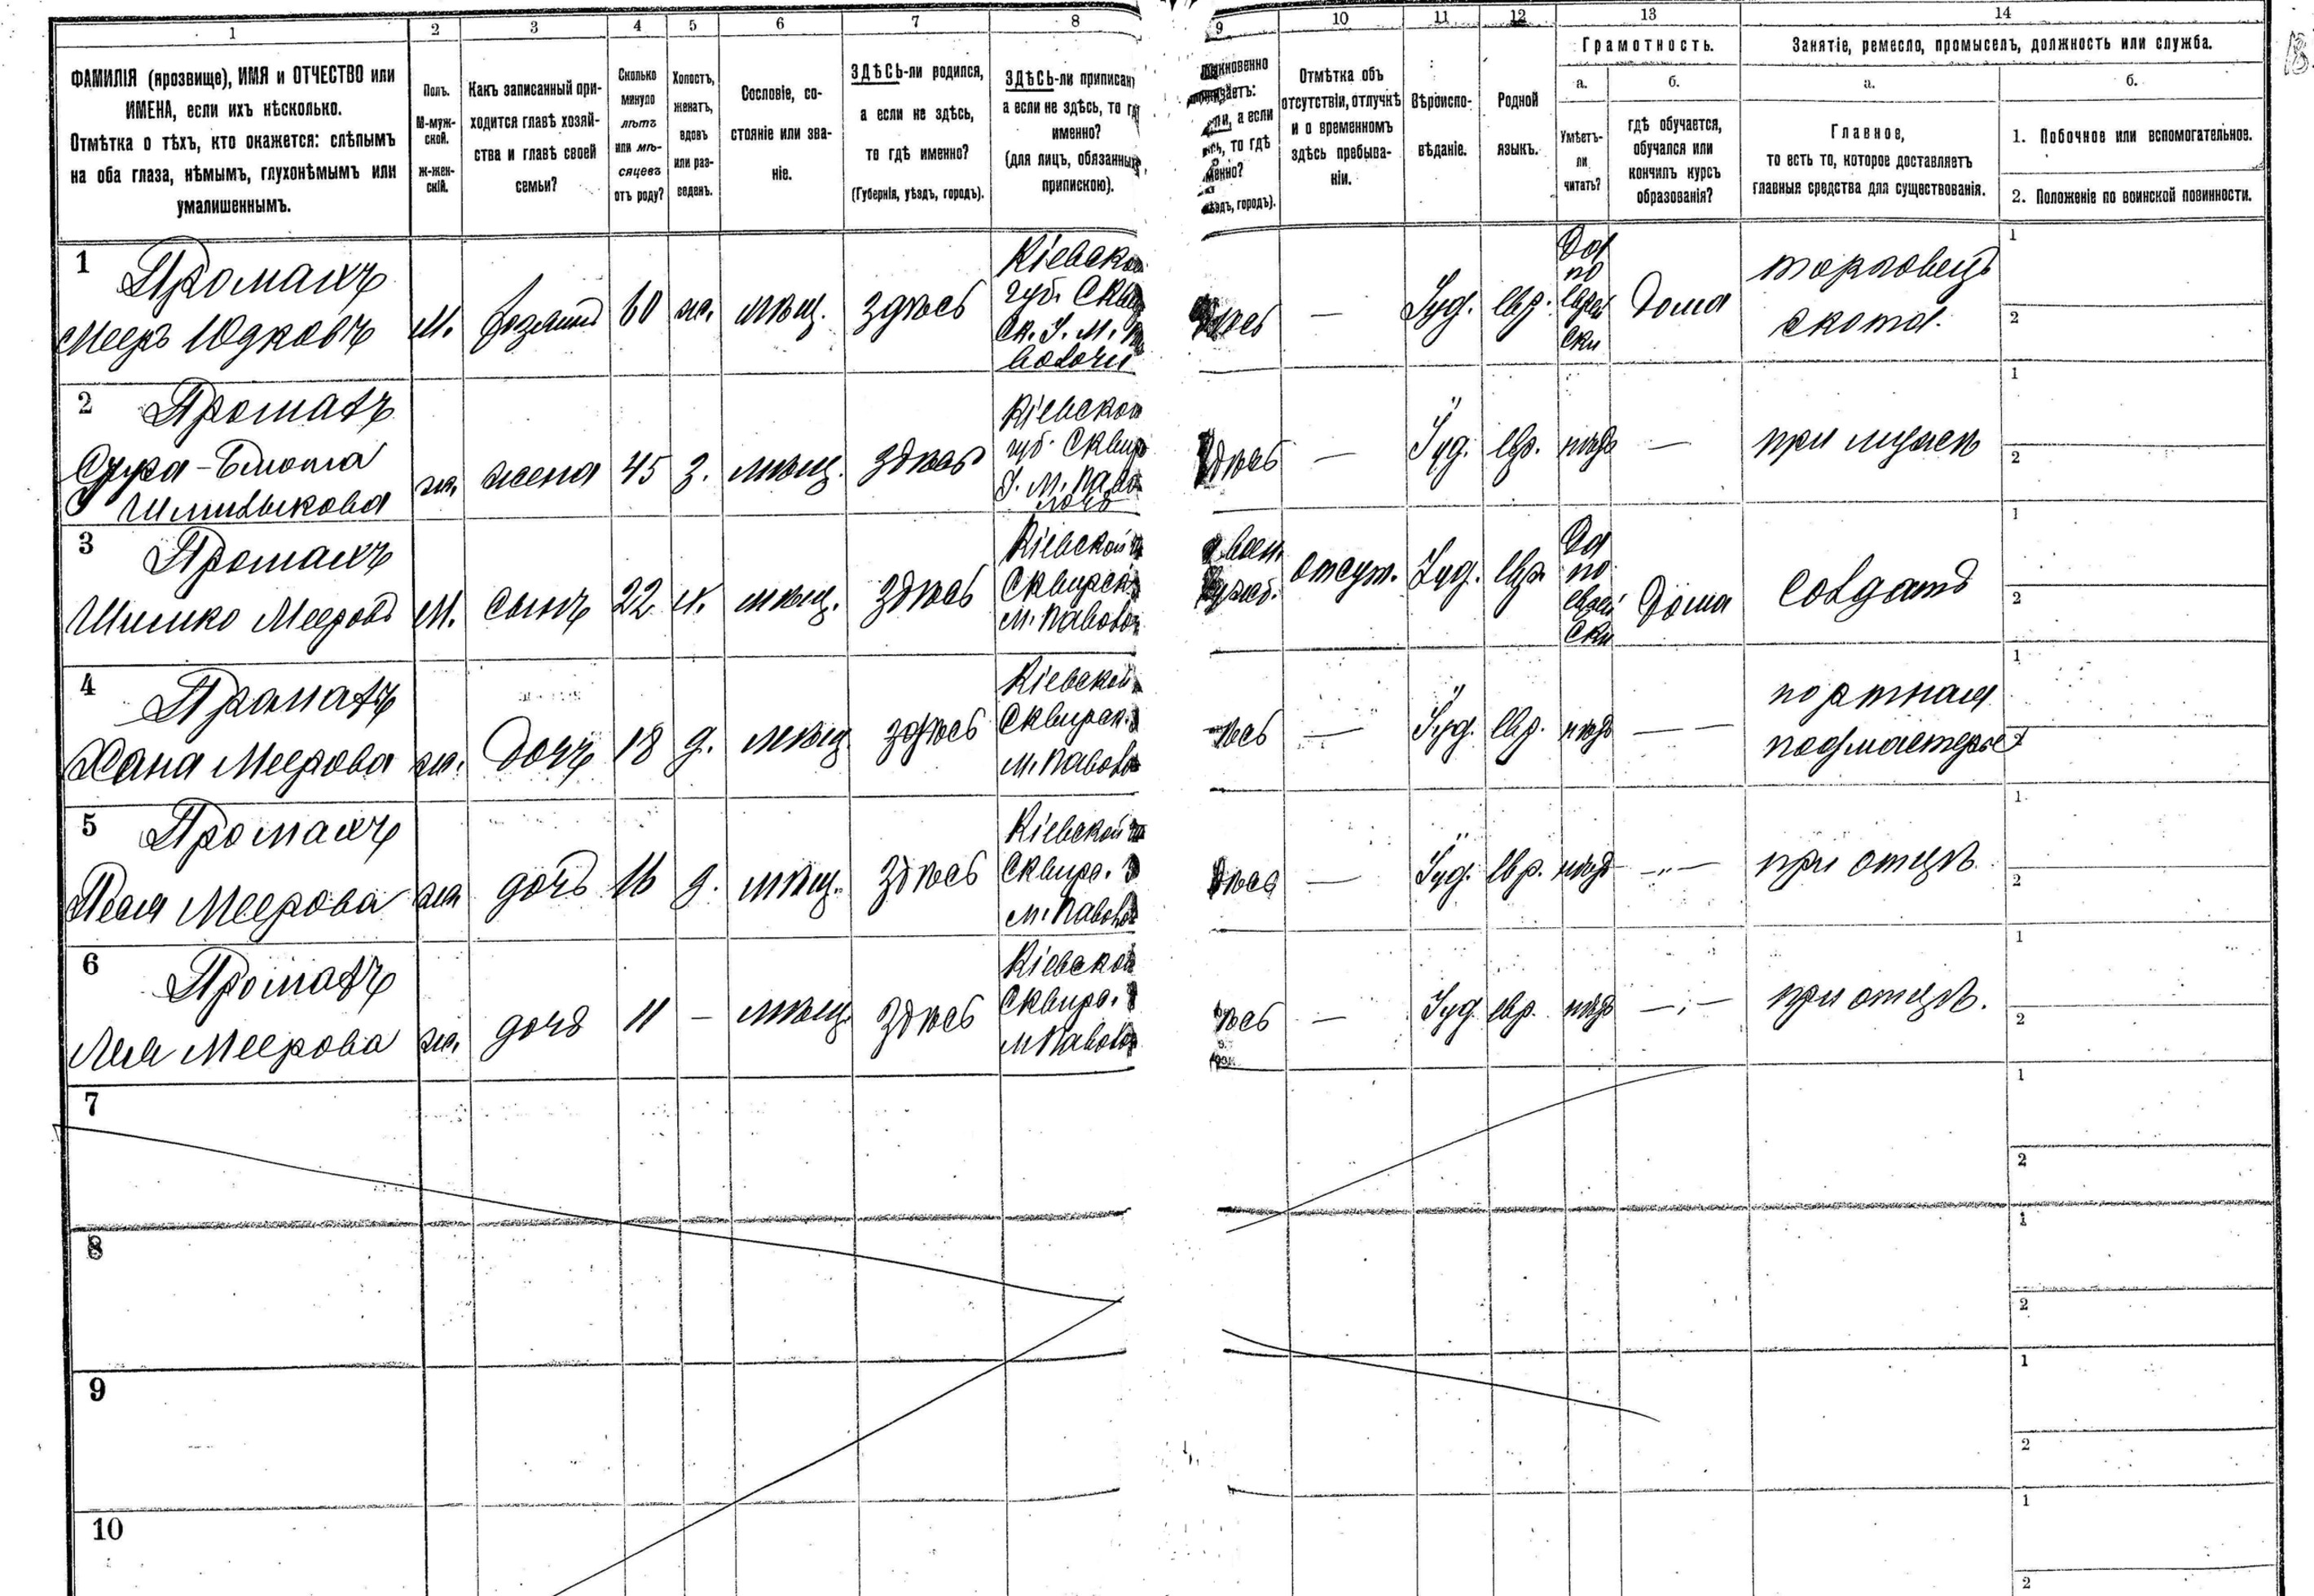 1 2 3 4 5 6 7 8 9 10 11 12 13 14
ФАМИЛІЯ (прозвище), ИМЯ и ОТЧЕСТВО или
ИМЕНА, если ихъ нѣсколько.
Отмѣтка о тѣхъ, кто окажется: слѣпымъ
на оба глаза, нѣмымъ, глухонѣмымъ или
умалишеннымъ.
Полъ.
М-муж-
ской.
Ж-жен-
скій.
Какъ записанный при-
ходится главѣ хозяй-
ства и главѣ своей
семьи?
Сколько
минуло
лѣтъ
или мѣ-
сяцевъ
отъ роду?
Холостъ,
женатъ,
вдовъ
или раз-
веденъ.
Сословіе, со-
стояніе или зва-
ніе.
ЗДѢСЬ-ли родился,
а если не здѣсь,
то гдѣ именно?
(Губернія, уѣздъ, городъ).
ЗДѢСЬ-ли приписан
а если не здѣсь, то гд
именно?
(для лицъ, обязанных
припискою).
а если
то гдѣ
городъ).
Отмѣтка объ
отсутствіи, отлучкѣ
и о временномъ
здѣсь пребыва-
ніи.
Вѣроиспо-
вѣданіе.
Родной
языкъ.
Грамотность.
а.
Умѣетъ-
ли
читать?
б.
гдѣ обучается,
обучался или
кончилъ курсъ
образованія?
Занятіе, ремесло, промыселъ, должность или служба.
а.
Главное,
то есть то, которое доставляетъ
главныя средства для существованія.
б.
1. Побочное или вспомогательное.
2. Положеніе по воинской повинности.
1 Промахъ
Мееръ Юдковъ
М. хозяинъ 60 ж. мѣщ. здѣсь
Кіевской
губ. Сквир
М.
— Іуд. евр.
Да
по
еврей
ски
Дома
торговецъ
скота.
1
2
2 Промахъ
Сура-
Шмилыкова
ж. жена 45 з. мѣщ. здѣсь
Кіевской
губ. Сквир
У. М. Паво
лочь
здѣсь — Іуд. евр. нѣтъ — при мужѣ
1
2
3 Промахъ
Шмилко Мееровъ
М. сынъ 22 х. мѣщ. здѣсь
Кіевской
Сквирск
М. Паволоч
отсут. Іуд. евр.
Да
по
еврей
ски
Дома солдатъ
1
2
4 Промахъ
Хана Меерова
ж. дочь 18 д. мѣщ. здѣсь
Кіевской
Сквирск.
М. Паволо
— Іуд. евр. нѣтъ —
портная
подмастерье
1
2
5 Промахъ
Песя Меерова
ж. дочь 16 д. мѣщ. здѣсь
Кіевской
Сквирс.
М. Паволо
— Іуд. евр. нѣтъ — при отцѣ
1
2
6 Промахъ
Лея Меерова
ж. дочь 11 — мѣщ. здѣсь
Кіевской
Сквирс.
М Паволо
— Іуд евр. нѣтъ — при отцѣ.
1
2
7
1
2
8
1
2
9
1
2
10
1
2